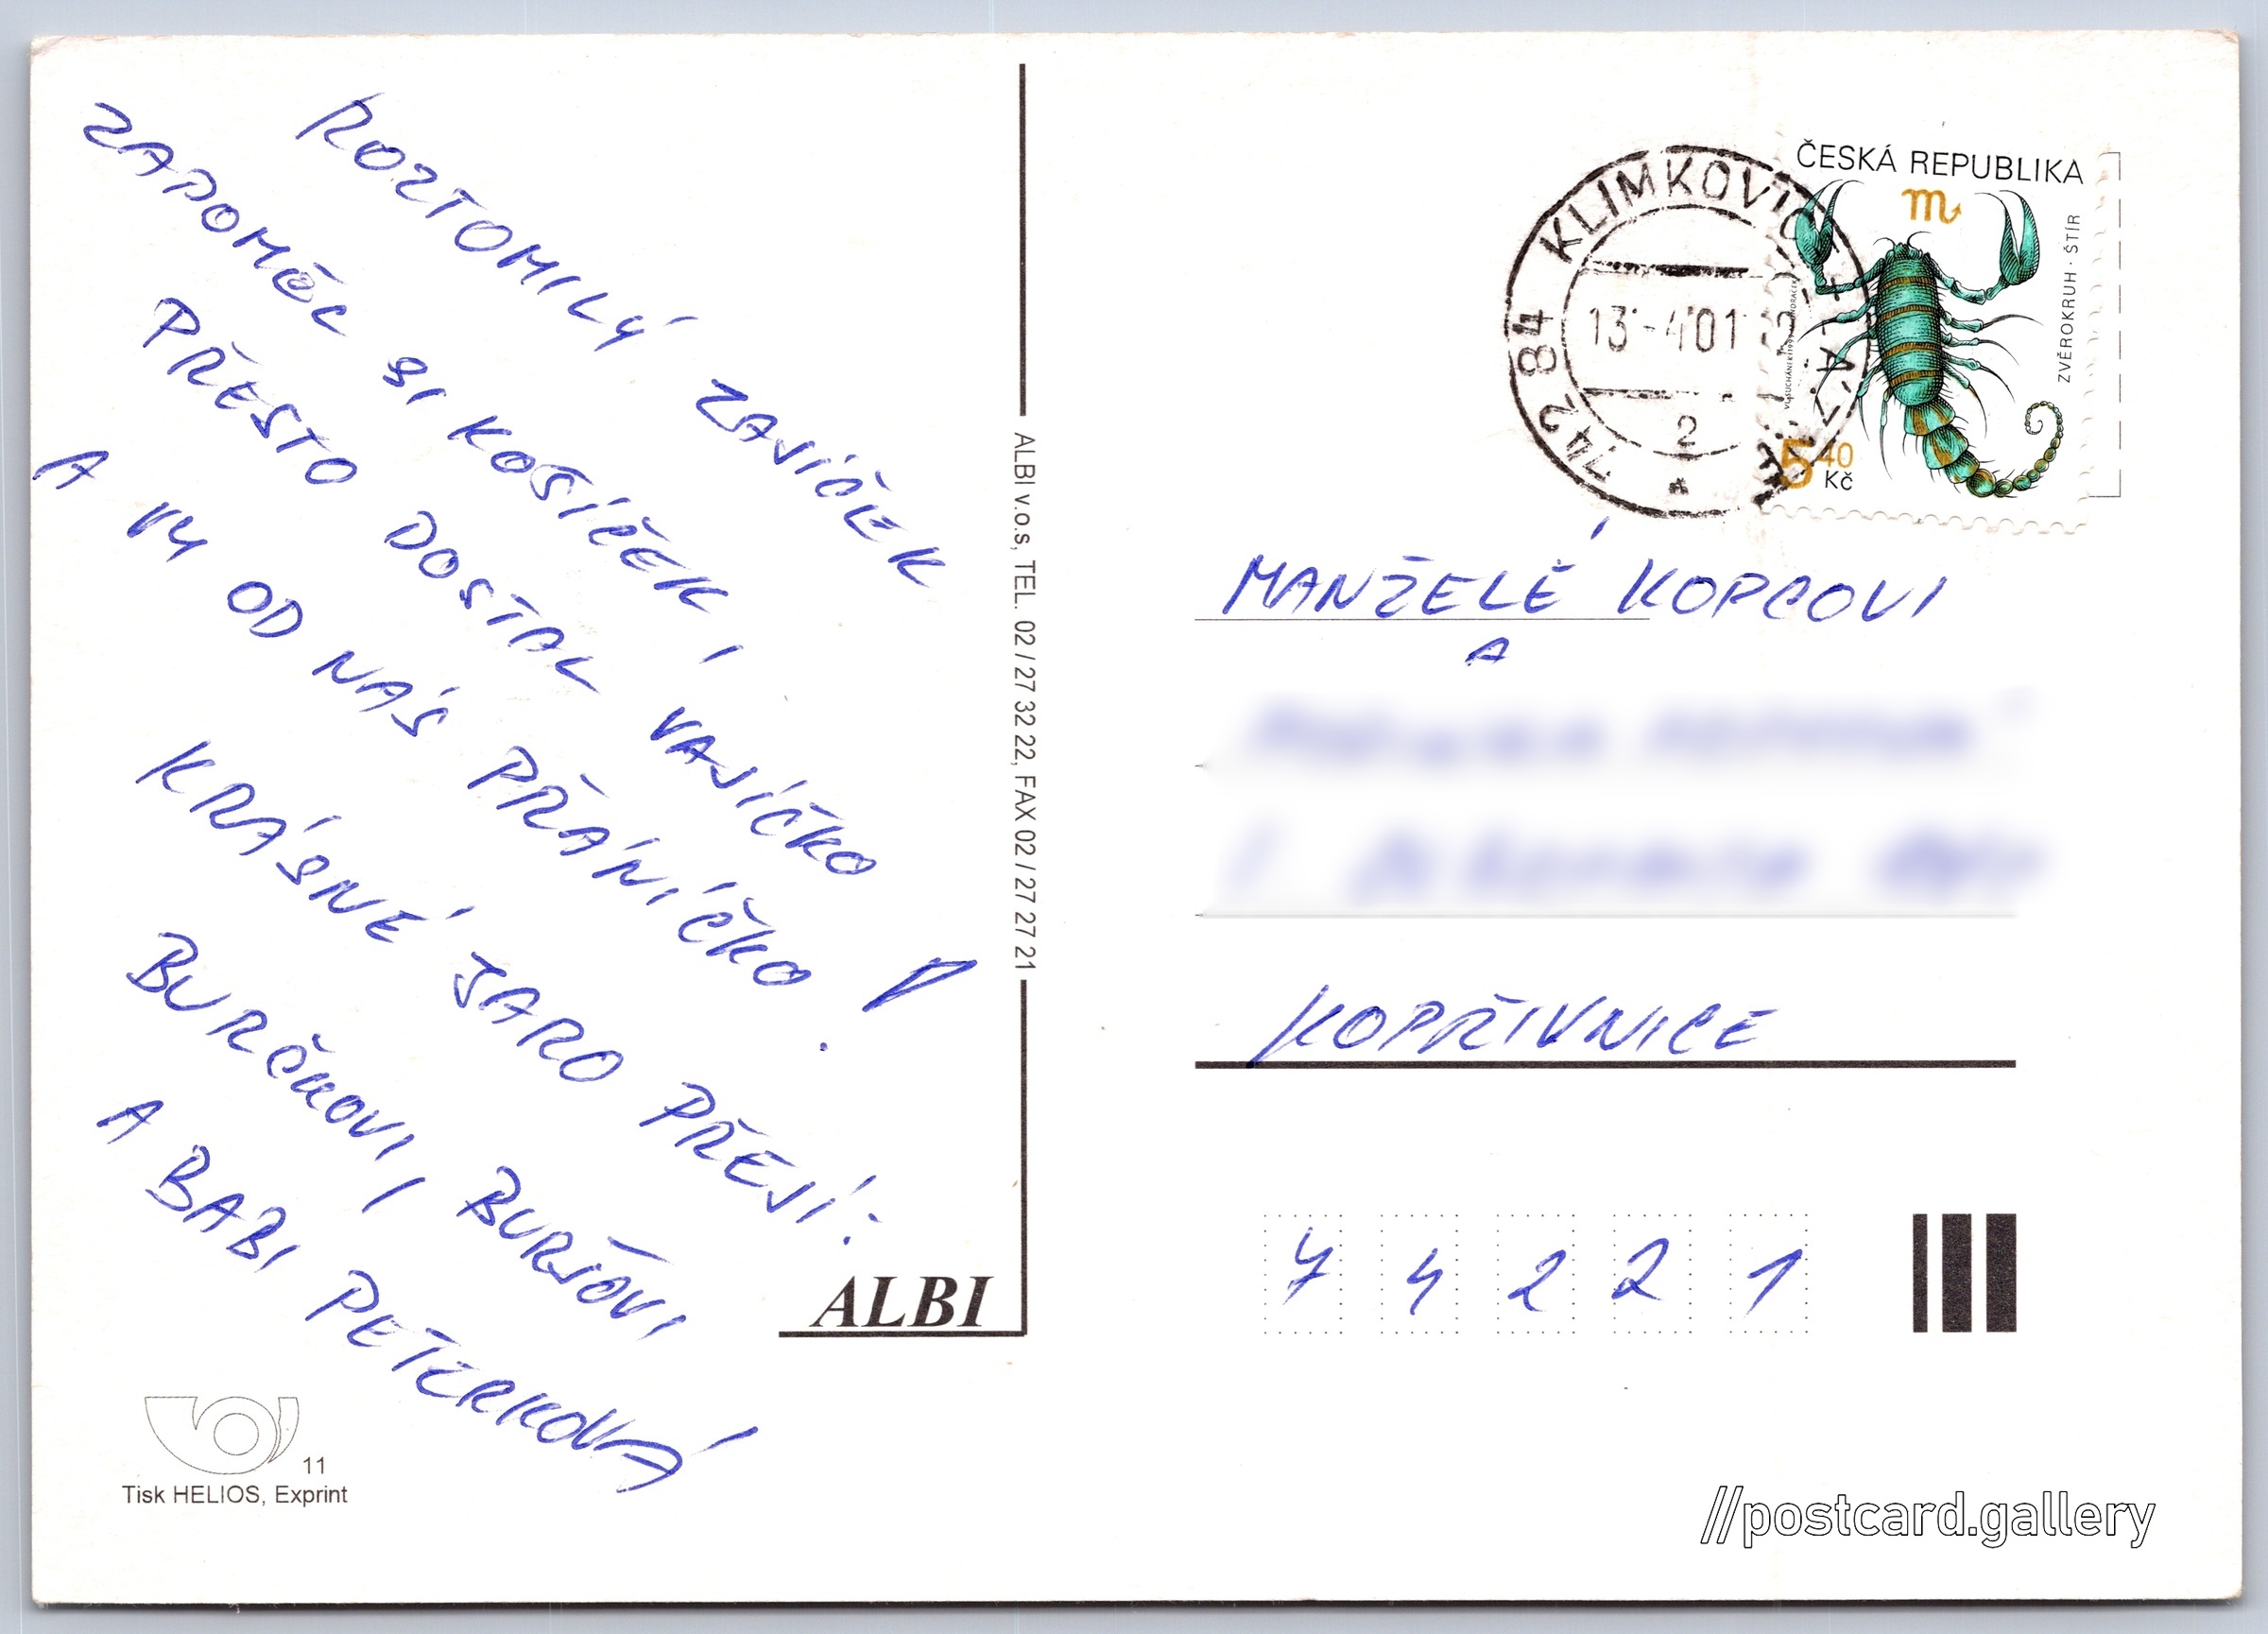 ROZTOMILÝ ZAJÍČEK
ZAPOMĚL SI KOŠÍČEK I
PŘESTO DOSTAL VAJÍČKO
A VY OD NÁS PŘÁNÍČKO !
KRÁSNÉ JARO PŘEJÍ:
BURČKOVI, BURJOVI
A BABI PETERKOVÁ
ALBI
11
Tisk HELIOS, Exprint
ALBI v.o.s, TEL. 02 / 27 32 22, FAX 02 / 27 27 21
742 84 KLIMKOVICE
13.-4.01
2
ČESKÁ REPUBLIKA
ZVĚROKRUH · ŠTÍR
5 40
Kč
MANŽELÉ KOPCOVI
A
KOPŘIVNICE
7 4 2 2 1
//postcard.gallery